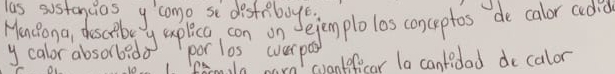 las sustancias y como se distribuye.
Menciona, describe y explica con un ejemplo los conceptos de calor cedido
y calor absorbido por los cuerpos
para cuantificar la cantidad de calor